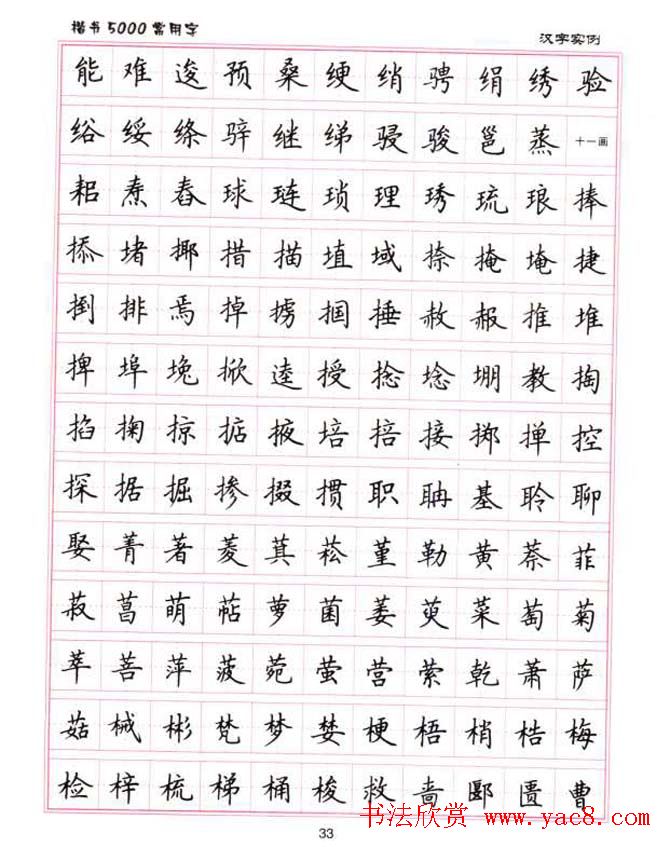 楷书5000常用字
汉字实例
能难逡预桑绠绡骋绢绣验
绤绥绦骍继绨骎骏邕蒸十一画
耜焘舂球琏琐理琇琉琅捧
掭堵揶措描埴域捺掩埯捷
捯排焉掉掳掴捶赦赧推堆
捭埠堍掀逵授捻埝堋教掏
掐掬掠掂掖培掊接掷掸控
探据掘掺掇掼职聃基聆聊
娶菁著菱萁菘堇勒黄萘菲
菽菖萌萜萝菌萎萸菜萄菊
萃菩萍菠菀萤营萦乾萧萨
菇械彬梵梦婪梗梧梢梏梅
检梓梳梯桶梭救啬郾匮曹
书法欣赏 www.yac8.com
33